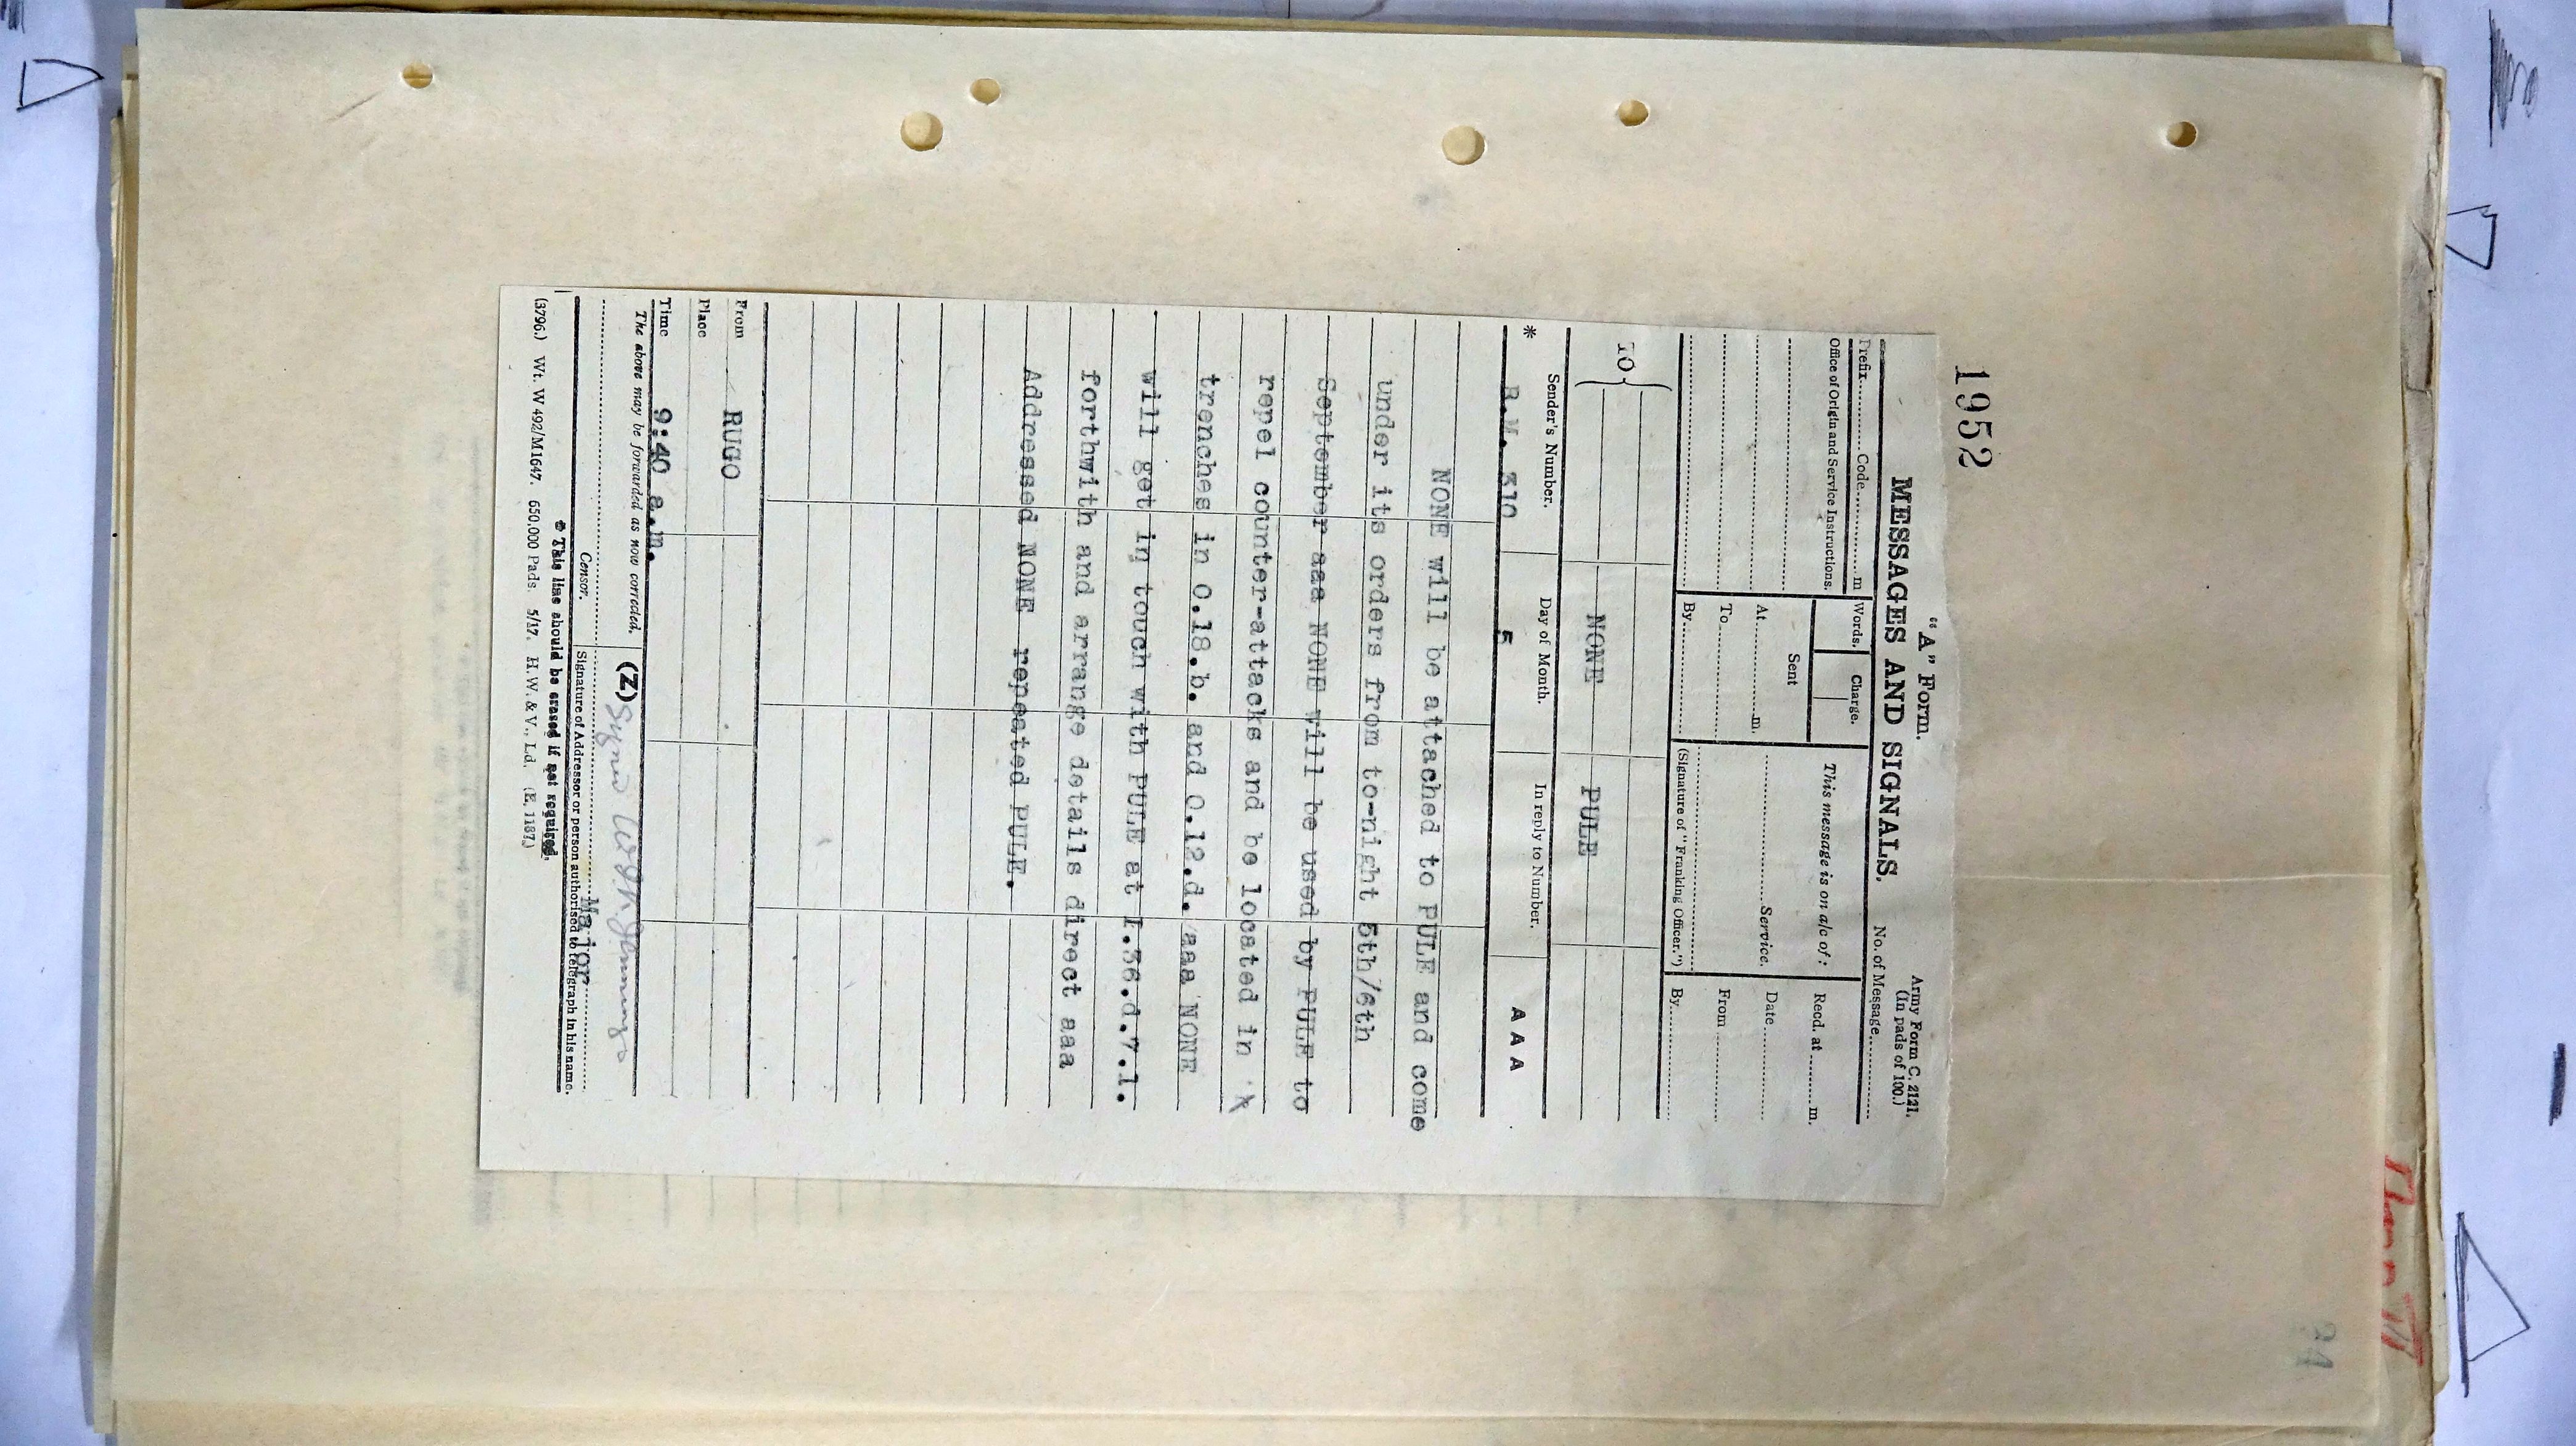 1952
"A" Form.
Army Form C. 2121.
(In pads of 100.)
MESSAGES AND SIGNALS.
No. of Message
Prefix Code m
Words.
Charge.
This message is on a/c of:
Recd. at m.
Office of Origin and Service Instructions.
Sent
At m.
Service.
Date
To
From
By
(Signature of "Franking Officer.")
By
TO
NONE PULE
* Sender's Number. Day of Month. In reply to Number. A A A
310 5
NONE will be attached to PULE and come
under its orders from to-night 5th/6th
September aaa NONE will be used by PULE to
repel counter-attacks and be located in
trenches in O.18.b. and O.12.d. aaa NONE
will get in touch with PULE at I.36.d.7.1.
forthwith and arrange details direct aaa
Addressed NONE repeated PULE.
From RUGO
Place
Time 9:40 a.m.
The above may be forwarded as now corrected. (Z) Signed Jennings
Major
Censor. Signature of Addressor or person authorised to telegraph in his name.
* This line should be erased if not required.
(3796.) Wt. W 492/M1647. 650,000 Pads. 5/17. H.W. & V., Ld. (E. 1187.)
24